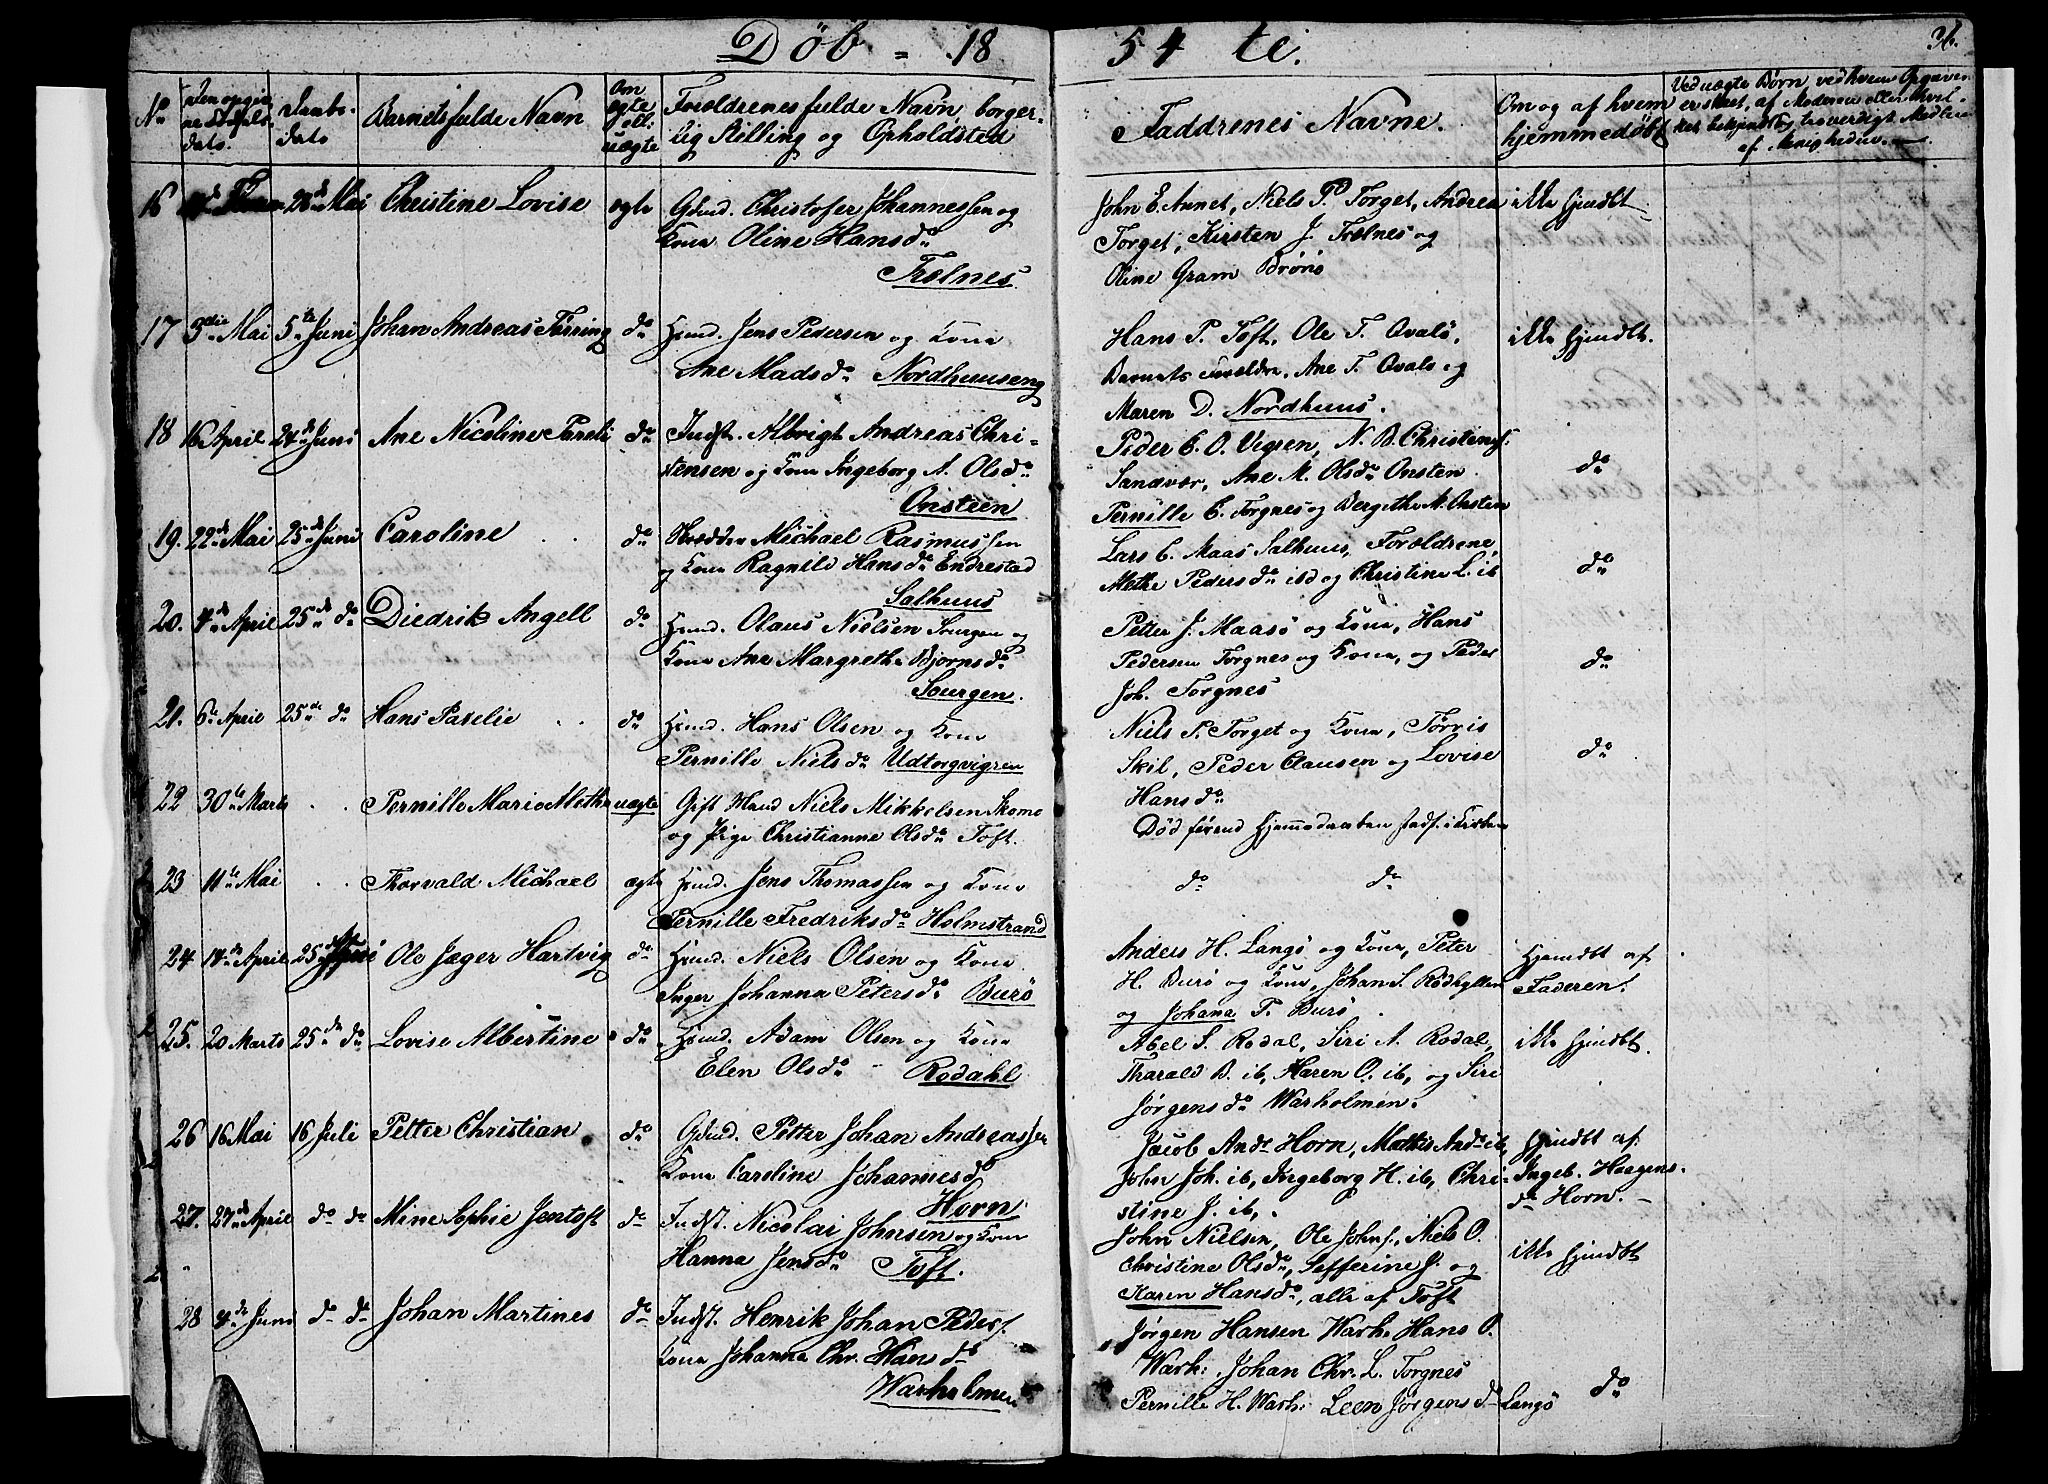 Döb - 18
54 te.
36.
No
Den opgiv-
ne Fødsels-
dato.
Daabs-
dato
Barnets fulde Navn
Om
ægte
ell.
uægte
Forældrenes fulde Navn, borger-
lig Stilling og Opholdsted
Faddrenes Navne.
Om og af hvem
hjemmedøbt
Ved uægte Børn, ved hvem Opgaven
er skeet, af Moderen eller hvil-
ket bekjendt og troværdigt Medlem
af Menigheden.
16 28de Mai Christine Lovise ægte Gdmd. Christofer Johannessen og
Kone Oline Hansdo
Trælnes
John E. Annet, Niels P. Torget, Andrea
Torget, Kirsten J. Trælnes og
Oline Gram Brønø
ikke hjmdbt
17 3die Mai 5te Juni Johan Andreas Tørring do Hmd. Jens Pedersen og Kone
Ane Madsdo Nordhuuseng
Hans P. Toft, Ole T. Qvalö,
Barnets Forældre, Ane T. Qvalö og
Maren D. Nordhuus.
ikke hjmdbt.
18 16 April 24de Juni Ane Nicoline Pareli do Indst. Albrigt Andreas Chri-
stensen og Kone Ingeborg A. Olsdo
Onsteen
Peder C. O. Vegren, N. B. Christens.
Sandvær, Ane M. Olsdo Onsten
Pernille C. Torgnes og Bergithe M. Onsten
do
19. 22de Mai 25de Juni Caroline do Skrædder Michael Rasmussen
og Kone Ragnild Hansdo Endrestad
Salhuus
Lars C. Maas Salhuus, Forældrene,
Methe Pedersdo ibd og Christine L. ib
do
20. 4de April 25de do Diedrik Angell do Hmd. Olaus Nielsen Sourgen og
Kone Ane Margrethe Bjornsdo
Sourgen.
Petter J. Maasö og Kone, Hans
Pedersen Torgnes og Kone, og Peder
Joh. Torgnes
do
21. 6te April 25de do Hans Parelie do Hmd. Hans Olsen og Kone
Pernille Nielsdo Udtorgvigren
Niels P. Torget og Kone, Törris
Skil, Peder Clausen og Lovise
Hansdo
do
22 30te Marts Pernille Marie Methe uægte Gift Mand Niels Mikkelsen Skomo
og Pige Christianne Olsdo Toft.
Död förend Hjemmedaaben Indf. i Kirken
23 11te Mai Thorvald Michael ægte Hmd. Jens Thomassen og Kone
Pernille Fredriksdo Holmstrand
do do
24 14de April 25de Juni Ole Jæger Hartvig do Hmd. Niels Olsen og Kone
Inger Johanna Petersdo Burö
Anders H. Langö og Kone, Peter
H. Burö og Kone, Johan S. Rödhyllen
og Johana P. Burö
Hjemdbt af
Faderen.
25. 20 Marts 25de do Lovise Albertine do Hmd. Adam Olsen og Kone
Elen Olsdo Rodahl
Abel S. Rodal, Siri A. Rodal,
Tharald B. ib, Maren O. ib, og Siri
Jörgensdo Warholmen.
ikke hjmdbt.
26 16 Mai 16 Juli Petter Christian do Gdmd. Petter Johan Andreasser
Kone Caroline Johannesdo
Horn
Jacob Andr Horn, Mathis Ando ib,
John Joh. ib, Ingeborg H. ib, Chri-
stine J. ib,
hjmdbt af
Ingeb. Haagens-
do Horn.
27. 27de April do do Mine Sophie Jentoft do Indst. Nicolai Johnsen og Kone
Hanna Jensdo Toft.
John Nielsen, Ole Johns., Niels O.
Christine Olsdo, Sefferine J. og
Karen Hansdo, alle af Toft
ikke hjmdbt
28 4de Juni do do Johan Martines do Indst. Henrik Johan Peders.
Kone Johanna Chr. Hansdo
Warholmen
Jörgen Hansen Warh. Hans O.
Warh: Johan Chr. L. Torgnes
Pernille H. Warh: Leen Jörgensdo Langö
do